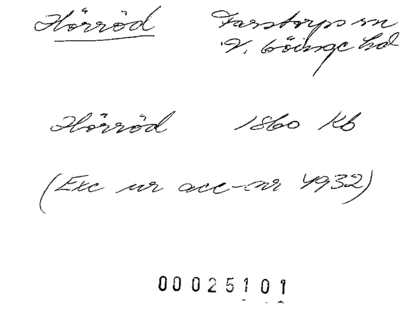 Hörröd Farstorps sn
V. Göinge hd
Hörröd 1860 Kb
(Exc ur acc-nr 4932)
00025101